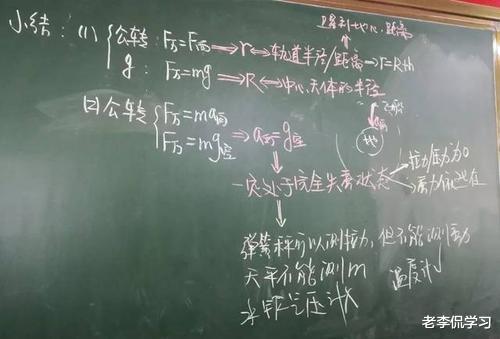 卫星到地心距离
小结：(1) { 公转：F万=F向 ⇒ r ↔ 轨道半径/距离 → r=R+h
g：F万=mg ⇒ R ↔ 中心天体的半径
(2) 公转 { F万=ma向
F万=mg空 ⇒ a向=g空
地
一定处于完全失重状态
拉力/压力为0
重力依然存在
弹簧秤可以测拉力，但不能测重力
天平不能测m
水银气压计×
温度计✓
老李侃学习